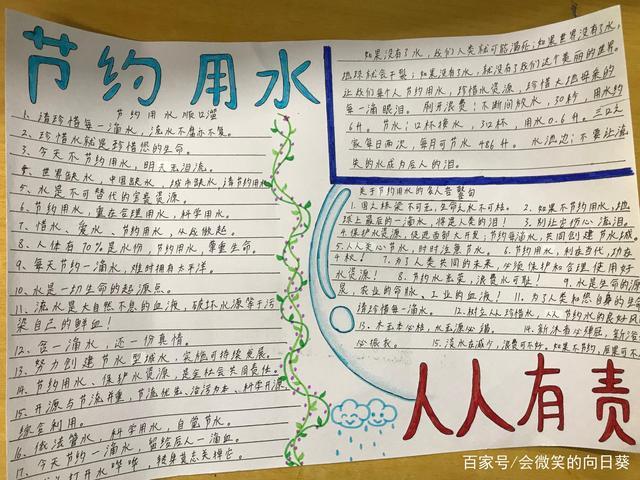 节约用水
节约用水顺口溜
1、请珍惜每一滴水，流水不腐永不复。
2、珍惜水就是珍惜您的生命。
3、今天不节约用水，明天无泪流。
4、世界缺水，中国缺水，城市缺水，请节约用水
5、水是不可替代的宝贵资源。
6、节约用水，重在合理用水，科学用水。
7、惜水、爱水、节约用水，从我做起。
8、人体有70%是水份，节约用水，尊重生命。
9、每天节约一滴水，难时拥有太平洋。
10、水是一切生命的起源点。
11、流水是大自然不息的血液，破坏水源等于污
染自己的鲜血！
12、省一滴水，还一份真情。
13、努力创建节水型城水，实施可持续发展。
14、节约用水、保护水资源，是全社会共同责任。
15、开源与节流并重，节流优先、治污为本、科学开源、
综合利用。
16、依法管水，科学用水，自觉节水。
17、今天节约一滴水，留给后人一滴血。
打开水哗哗，转身莫忘关掉它。
如果没有了水，我们人类就可能灭亡；如果世界没有了水，
地球就会干裂；如果没有了水，就没有了我们这个美丽的世界。
让我们每个人节约用水，珍惜水资源，珍惜大地母亲的
每一滴眼泪。刷牙浪费！不断间放水，30秒，用水约
6升。节水！口杯接水，3口杯，用水0.6升。三口之
家每日两次，每月可节水486升。水流边！不要让流
失的水成为后人的泪。
关于节约用水的名人告警句
1、国无栋梁不可主，生命无水不可栋。
2、如果不节约用水，地
球上最后的一滴水，将是人类的泪！
3、别让它伤心流泪。
4、保护水资源，促进西部大开发；节约每滴水，共同创建节水城
5、人人关心节水，时时注意节水。
6、节约用水，利在当代，功在
千秋！
7、为了人类共同的未来，必须维护和合理使用好
水资源！
8、节约水光荣，浪费水可耻！
9、水是生命的源
泉，农业的命脉，工业的血液！
11、为了人类和您自身的生命
请珍惜每一滴水。
12、树立人人珍惜水，人人节约水的良好风
13、木无本必枯，水无源必竭。
必振救。
15、淡水在减少，浪费可不好。如果不节约，后果可不
人人有责
百家号/会微笑的向日葵